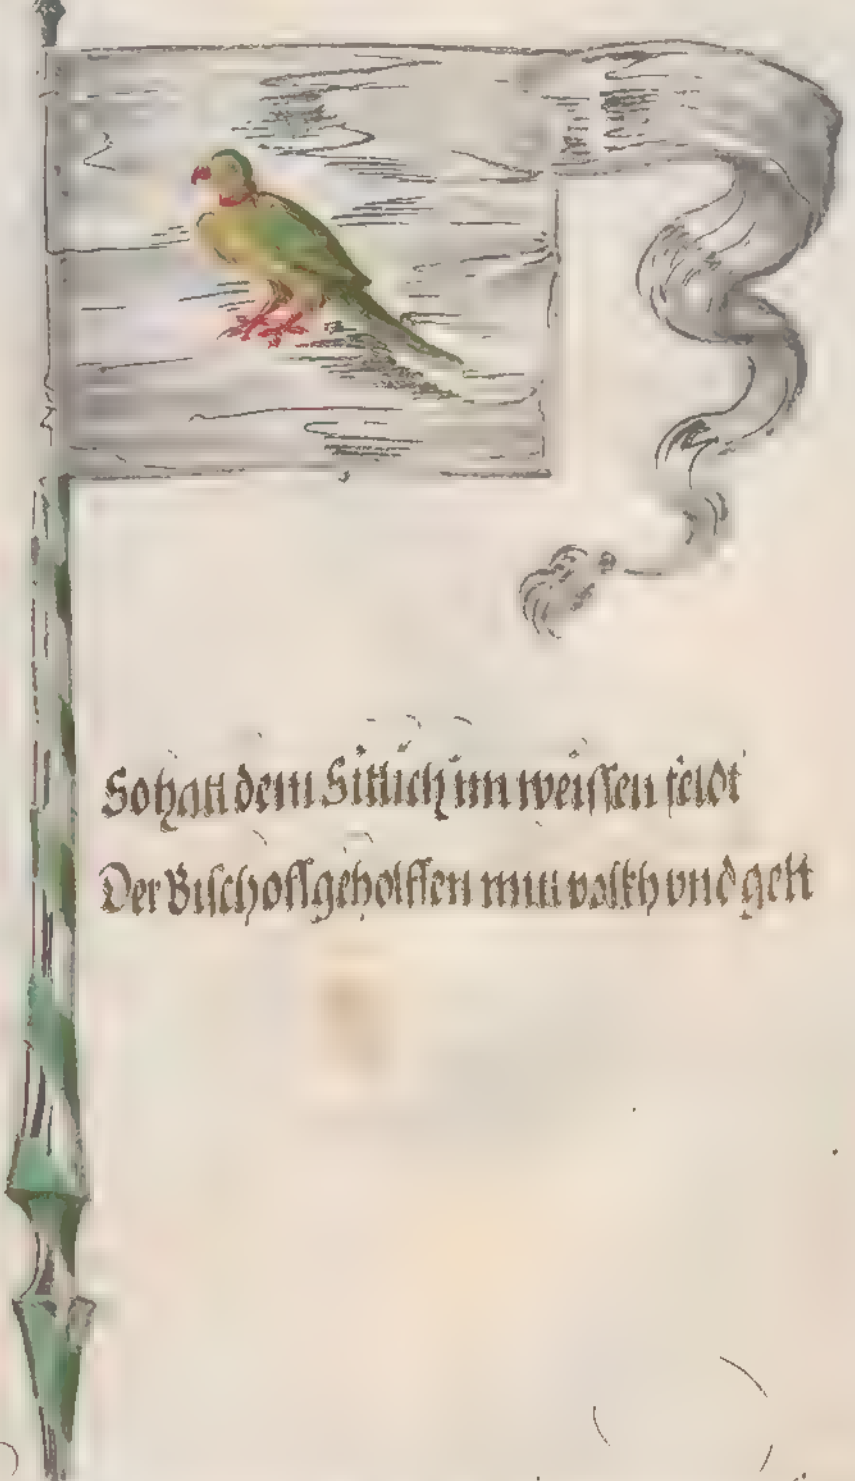 So hatt dem Sittich im weissen feldt
Der Bischoff geholffen mitt volkh vnd gelt